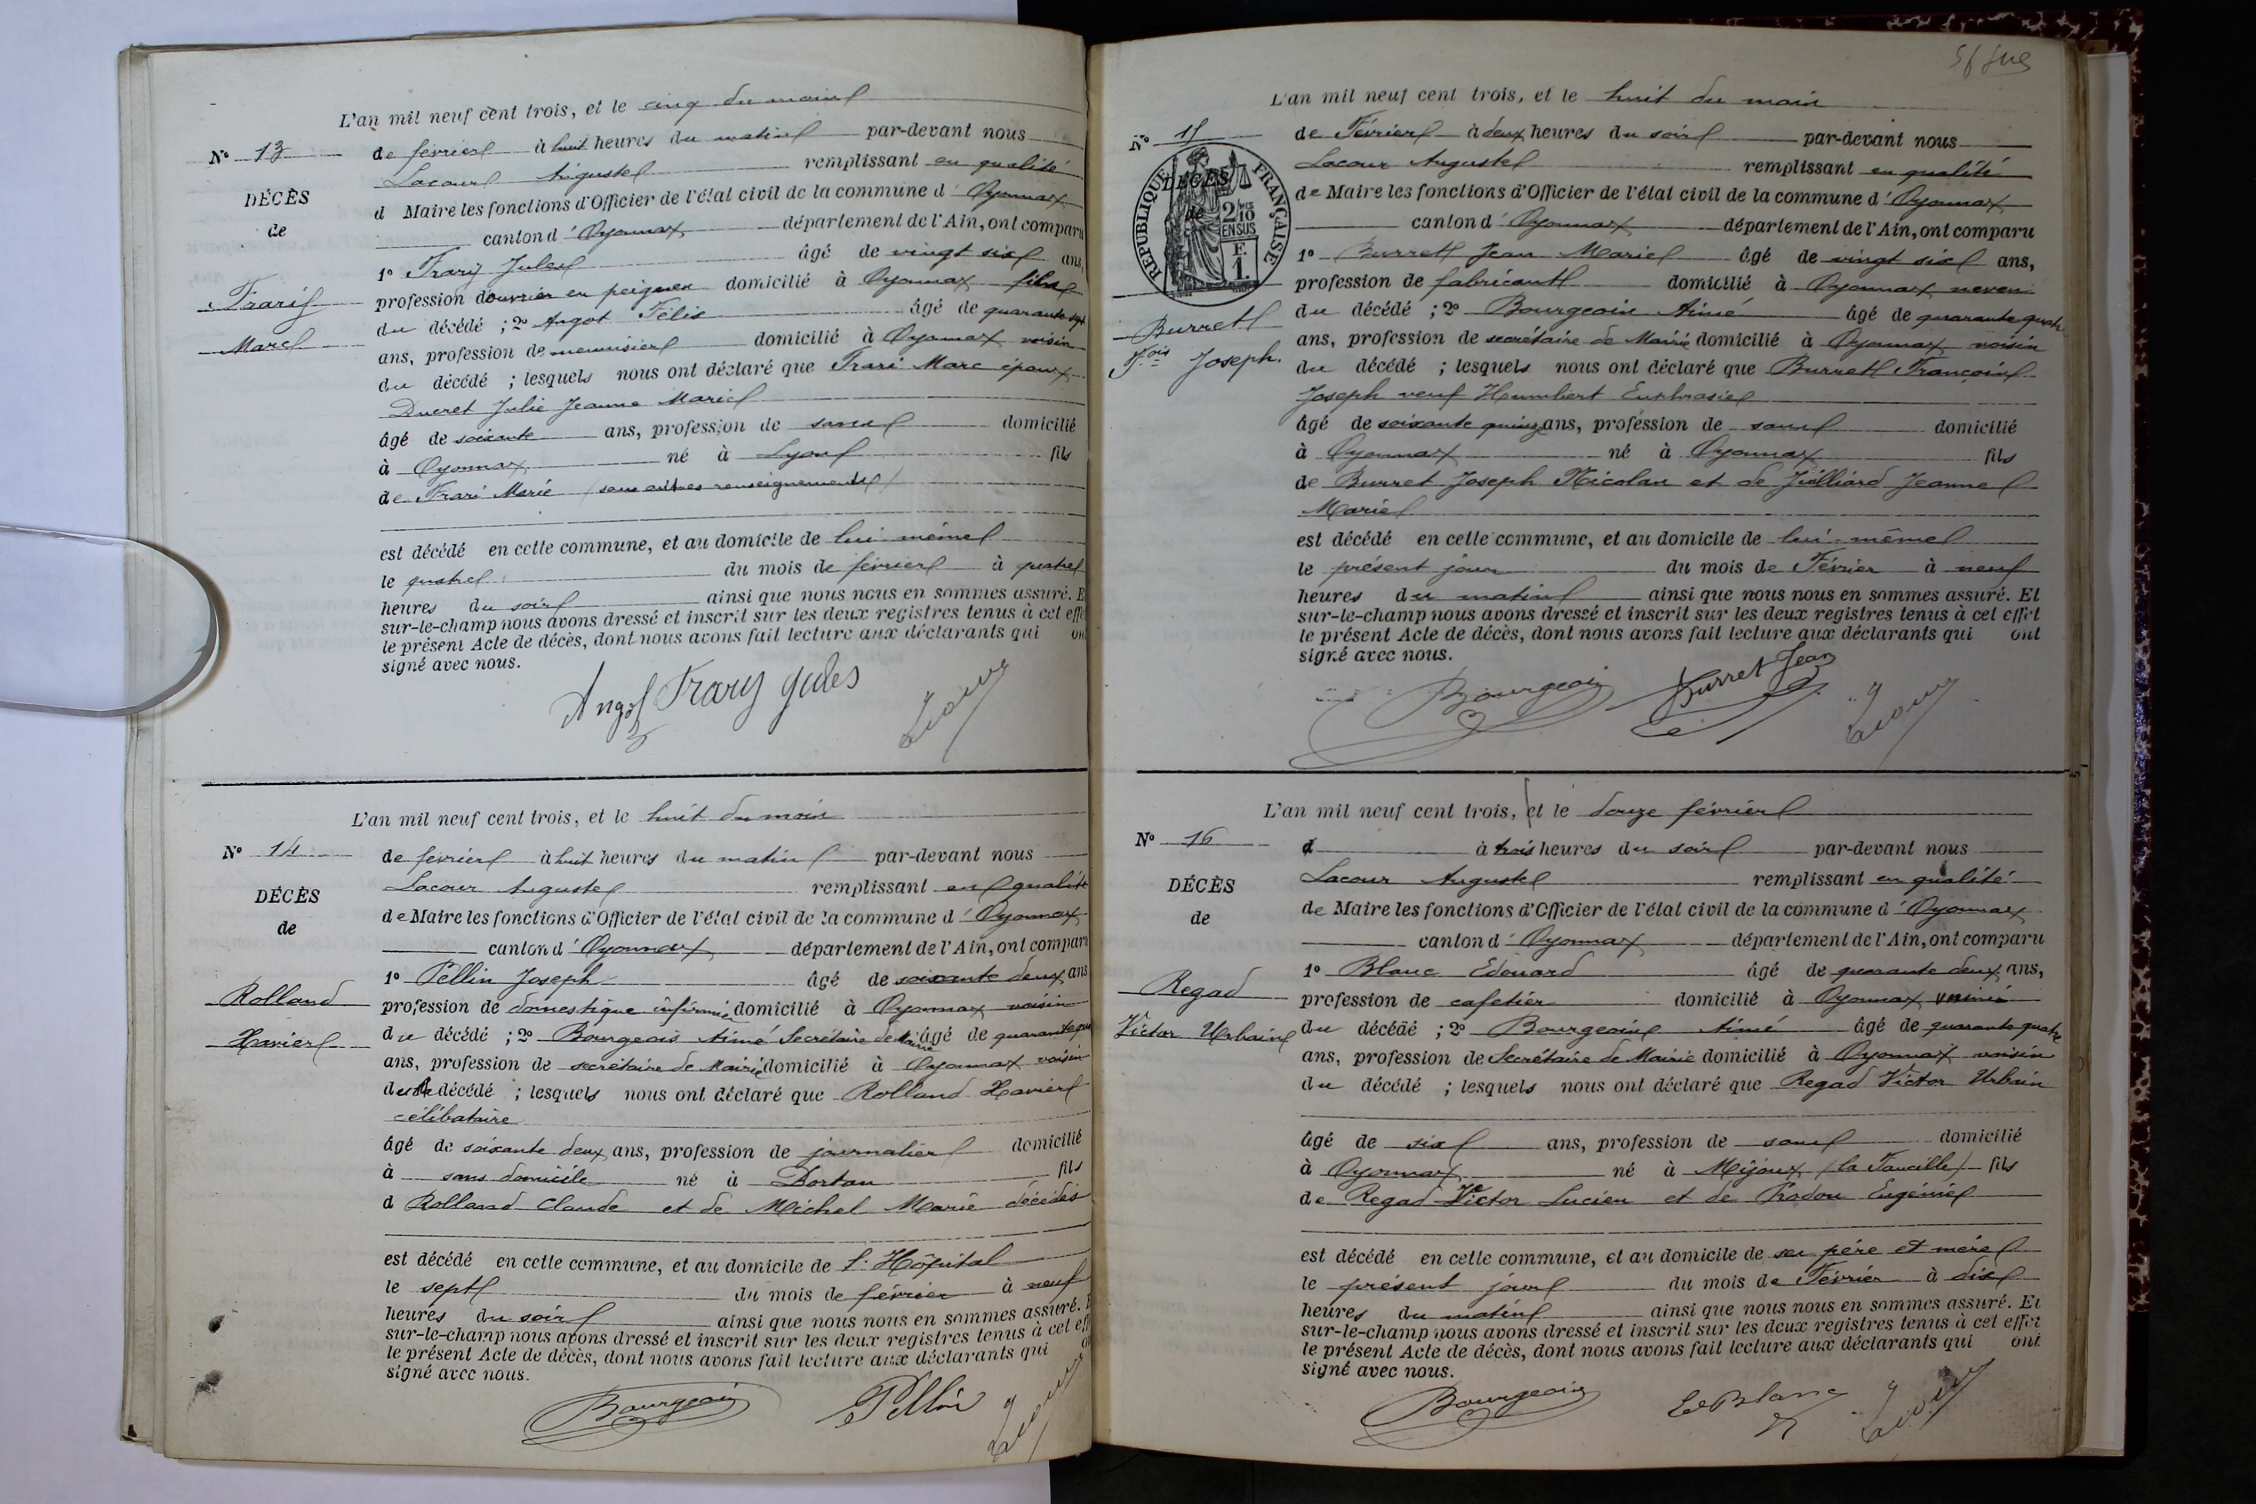 L'an mil neuf cent trois, et le cinq du mois
N° 13
de février à huit heures du matin par-devant nous
Lacour Auguste remplissant en qualité
DÉCÈS
d Maire les fonctions d'Officier de l'état civil de la commune d'Oyonnax
de
canton d'Oyonnax département de l'Ain, ont comparu
1° Frarij Jules âgé de vingt six ans,
Frarij
profession d'ouvrier en peignes domicilié à Oyonnax fils
du décédé ; 2° Angot Félix âgé de quarante sept
Marc
ans, profession de menuisier domicilié à Oyonnax voisin
du décédé ; lesquels nous ont déclaré que Frari Marc époux
Ducret Julie Jeanne Marie
âgé de soixante ans, profession de sans domicilié
à Oyonnax né à Lyon fils
de Frari Marie (sans autres renseignements)
est décédé en cette commune, et au domicile de lui même
le quatre du mois de février à quatre
heures du soir ainsi que nous nous en sommes assuré. E
sur-le-champ nous avons dressé et inscrit sur les deux registres tenus à cet effe
le présent Acte de décès, dont nous avons fait lecture aux déclarants qui on
signé avec nous.
Angot Frary Jules Lacour
L'an mil neuf cent trois, et le huit du mois
N° 14
de février à huit heures du matin par-devant nous
Lacour Auguste remplissant en qualité
DÉCÈS
de Maire les fonctions d'Officier de l'état civil de la commune d'Oyonnax
de
canton d'Oyonnax département de l'Ain, ont comparu
1° Pellin Joseph âgé de soixante deux ans
Rolland
profession de domestique infirmier domicilié à Oyonnax voisin
Xavier
du décédé ; 2° Bourgeois Aimé Secrétaire de Mairie âgé de quarante qua
ans, profession de secrétaire de Mairie domicilié à Oyonnax voisin
du décédé ; lesquels nous ont déclaré que Rolland Xavier
célibataire
âgé de soixante deux ans, profession de journalier domicilié
à sans domicile né à Dortan fils
d Rolland Claude et de Michel Marie décédés
est décédé en cette commune, et au domicile de l'Hôpital
le sept du mois de février à neuf
heures du soir ainsi que nous nous en sommes assuré. E
sur-le-champ nous avons dressé et inscrit sur les deux registres tenus à cet eff
le présent Acte de décès, dont nous avons fait lecture aux déclarants qui o
signé avec nous.
Bourgeois Pellin Lacour
L'an mil neuf cent trois, et le huit du mois
N° 15
de Février à deux heures du soir par-devant nous
Lacour Auguste remplissant en qualité
RÉPUBLIQUE FRANÇAISE
2/10 EN SUS
F. 1
DÉCÈS
de
de Maire les fonctions d'Officier de l'état civil de la commune d'Oyonnax
canton d'Oyonnax département de l'Ain, ont comparu
1° Burret Jean Marie âgé de vingt six ans,
profession de fabricant domicilié à Oyonnax neveu
Burret
du décédé ; 2° Bourgeois Aimé âgé de quarante quatre
fçois Joseph.
ans, profession de secrétaire de Mairie domicilié à Oyonnax voisin
du décédé ; lesquels nous ont déclaré que Burret François
Joseph veuf Humbert Euphrasie
âgé de soixante quinze ans, profession de sans domicilié
à Oyonnax né à Oyonnax fils
de Burret Joseph Nicolas et de Jeanne
Marie
est décédé en cette commune, et au domicile de lui-même
le présent jour du mois de Février à neuf
heures du matin ainsi que nous nous en sommes assuré. Et
sur-le-champ nous avons dressé et inscrit sur les deux registres tenus à cet effet
le présent Acte de décès, dont nous avons fait lecture aux déclarants qui ont
signé avec nous.
Bourgeois Burret Jean Lacour
L'an mil neuf cent trois, et le douze février
N° 16
d à trois heures du soir par-devant nous
Lacour Auguste remplissant en qualité
DÉCÈS
de Maire les fonctions d'Officier de l'état civil de la commune d'Oyonnax
de
canton d'Oyonnax département de l'Ain, ont comparu
1° Blanc Edouard âgé de quarante deux ans,
Regad
profession de cafetier domicilié à Oyonnax voisin
Victor Urbain
du décédé ; 2° Bourgeois Aimé âgé de quarante quatre
ans, profession de Secrétaire de Mairie domicilié à Oyonnax voisin
du décédé ; lesquels nous ont déclaré que Regad Victor Urbain
âgé de six ans, profession de sans domicilié
à Oyonnax né à Mijoux (la Faucille) fils
de Regad Victor Lucien et de Prodon Eugénie
est décédé en cette commune, et au domicile de ses père et mère
le présent jour du mois de Février à dix
heures du matin ainsi que nous nous en sommes assuré. Et
sur-le-champ nous avons dressé et inscrit sur les deux registres tenus à cet effet
le présent Acte de décès, dont nous avons fait lecture aux déclarants qui ont
signé avec nous.
Bourgeois Ed Blanc Lacour